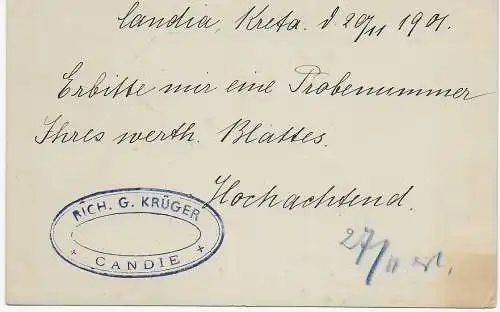 Candia, Kreta. d. 20/11 1901.
Erbitte mir eine Probenummer
Ihres werth. Blattes.
Hochachtend.
RICH. G. KRÜGER
+ CANDIE +
27/11